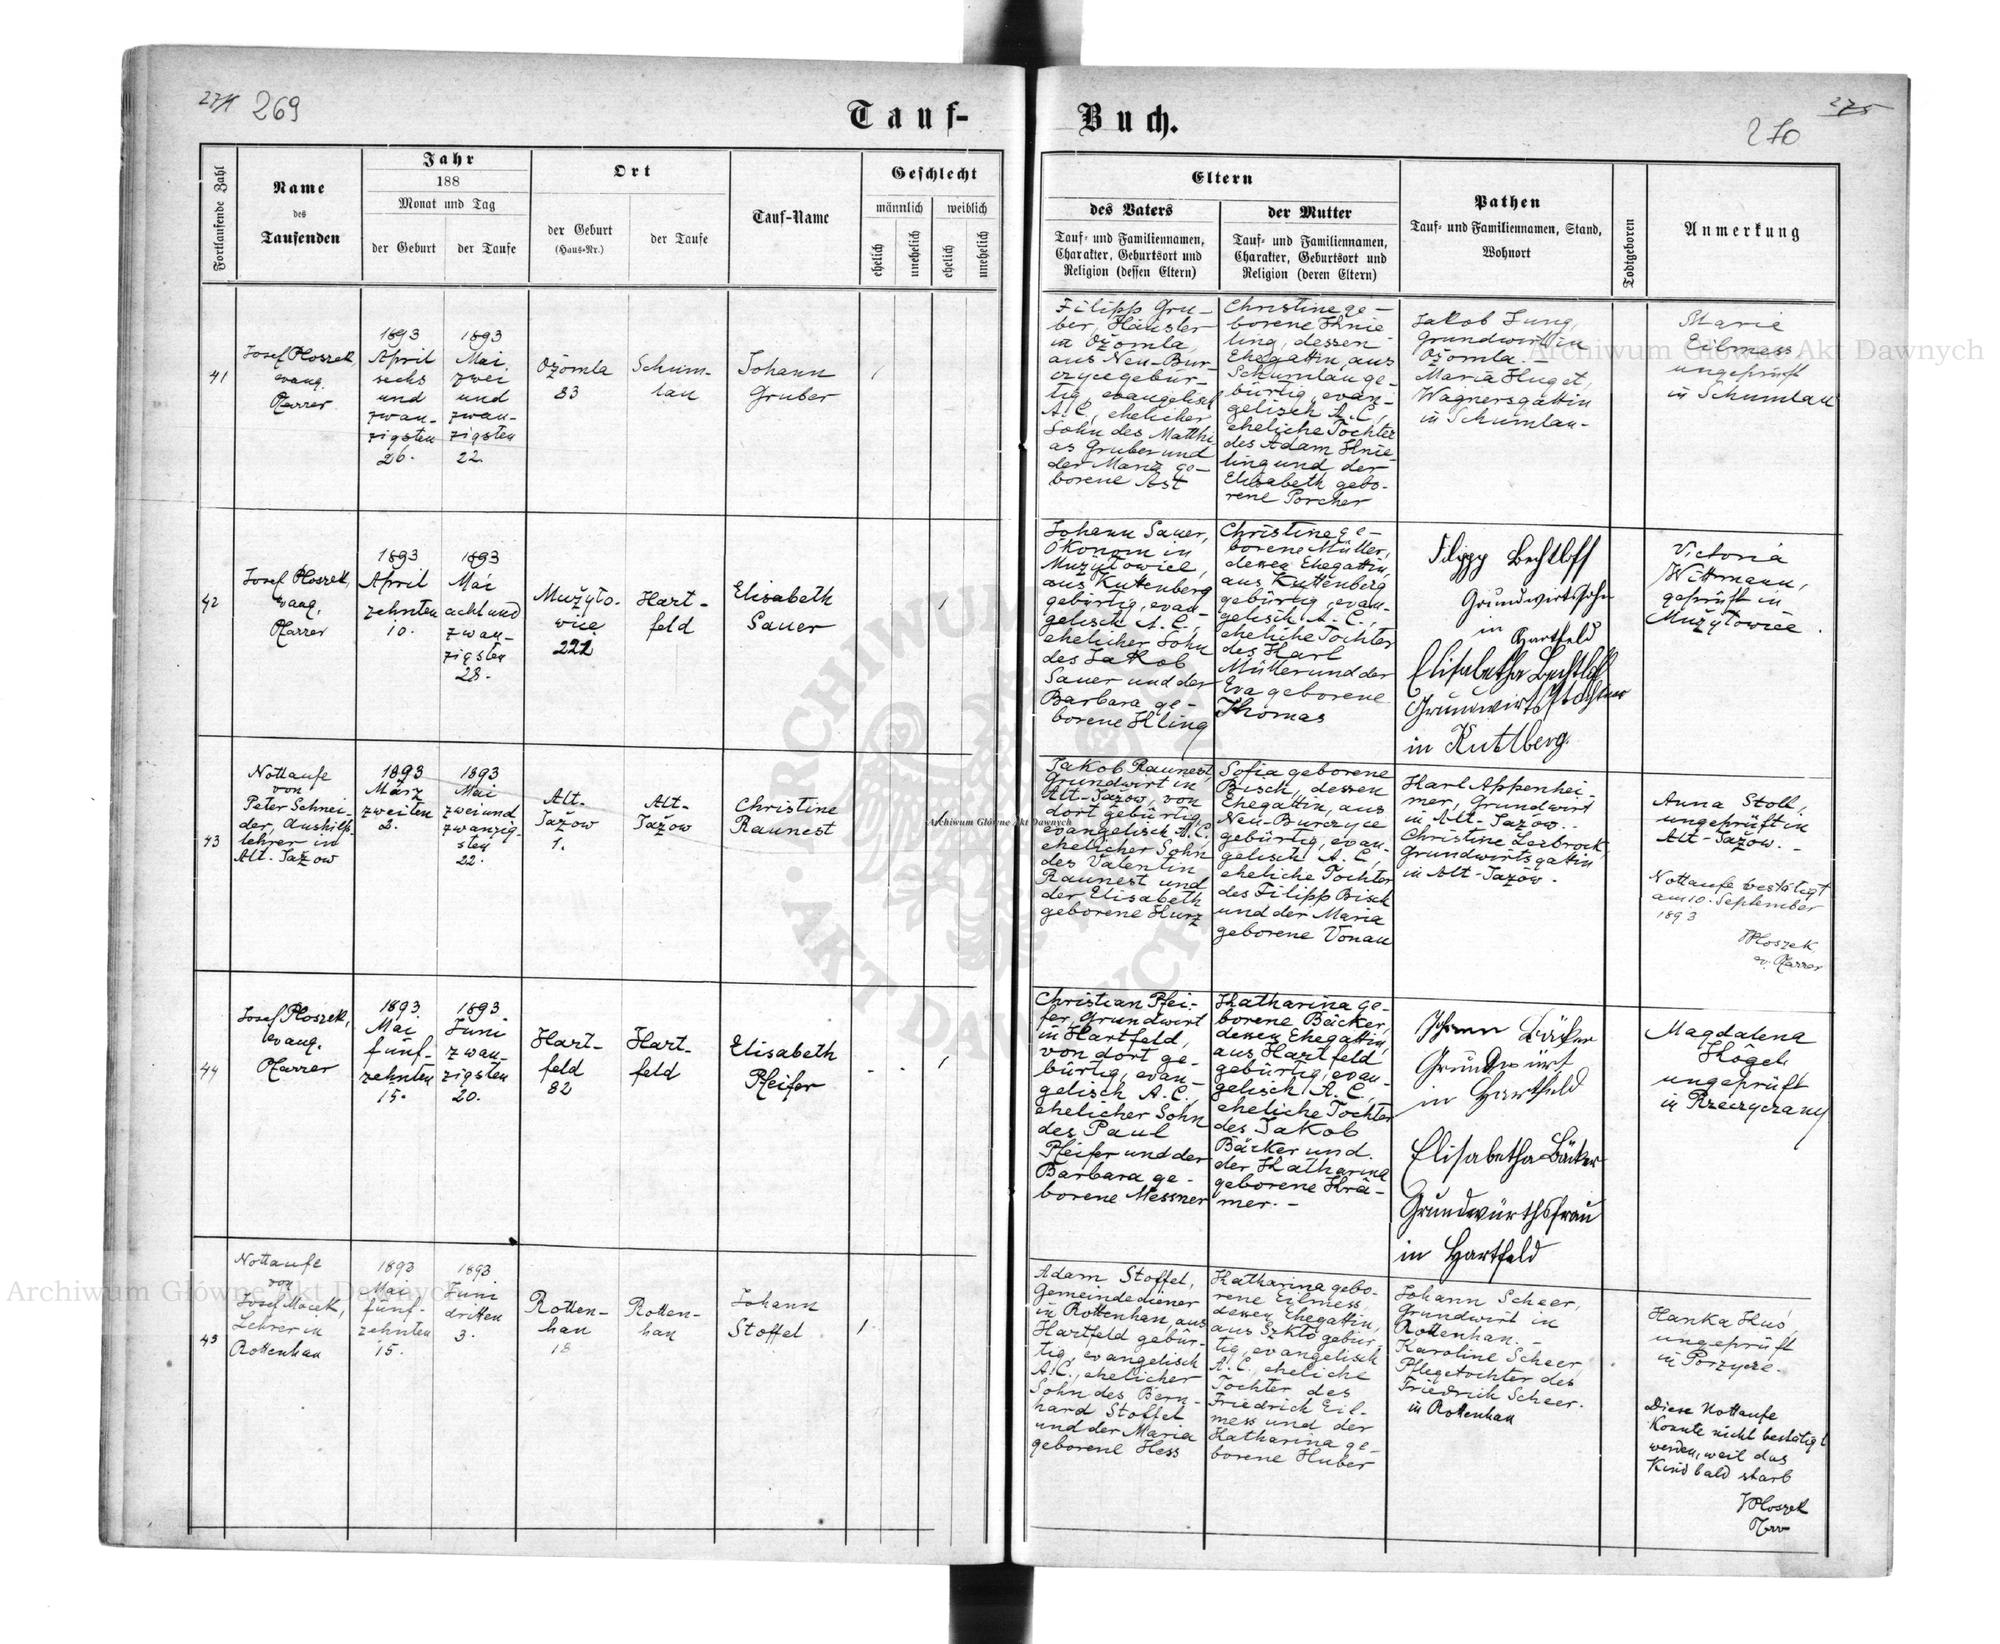 269
270
275
Tauf-
Buch.
Fortlaufende Zahl
Name
des
Taufenden
Jahr
188
Monat und Tag
der Geburt
der Taufe
Ort
der Geburt
(Haus-Nr.)
der Taufe
Tauf-Name
Geschlecht
männlich
weiblich
ehelich
unehelich
ehelich
unehelich
Eltern
des Vaters
Tauf- und Familiennamen,
Charakter, Geburtsort und
Religion (dessen Eltern)
der Mutter
Tauf- und Familiennamen,
Charakter, Geburtsort und
Religion (deren Eltern)
Pathen
Tauf- und Familiennamen, Stand,
Wohnort
Todtgeboren
Anmerkung
41
Josef Ploszek,
evang.
Pfarrer
1893
April
sechs
und
zwan-
zigsten
26.
1893
Mai
zwei
und
zwan-
zigsten
22.
Ożomla
83
Schum-
lau
Johann
Gruber
Filipp Gru-
ber, Häusler
in Ożomla,
aus Neu-Bur-
czyce gebür-
tig, evangelisch
A. C., ehelicher
Sohn des Matthi-
as Gruber und
der Maria ge-
borene Ast
Christine ge-
borene Knie
ling, dessen
Ehegattin, aus
Schumlau ge-
bürtig, evan-
gelisch A. C.,
eheliche Tochter
des Adam Knie-
ling und der
Elisabeth gebo-
rene Porcher
Jakob Jung,
Grundwirt in
Ożomla. -
Maria Huget,
Wagnersgattin
in Schumlau-
Marie
Eilmess
ungeprüft
in Schumlau
42
Josef Ploszek,
evang.
Pfarrer
1893
April
zehnten
10.
1893
Mai
acht und
zwan-
zigsten
28.
Mużyło-
wice
221
Hart-
feld
Elisabeth
Sauer
Johann Sauer,
Ökonom in
Mużyłowice,
aus Kuttenberg
gebürtig, evan-
gelisch A. C.,
ehelicher Sohn
des Jakob
Sauer und der
Barbara ge-
borene Kling
Christine ge-
borene Müller,
dessen Ehegattin,
aus Kuttenberg
gebürtig, evan-
gelisch A. C.,
eheliche Tochter
des Karl
Müller und der
Eva geborene
Thomas
Filipp Bechtloff
Grundwirtssohn
in Hartfeld
Elisabetha Bechtloff
Grundwirtstochter
in Kuttberg.
Victoria
Wittmann,
geprüft in
Mużyłowice.
43
Nottaufe
von
Peter Schnei-
der, Aushilfs-
lehrer in
Alt-Jażow
1893
März
zweiten
2.
1893
Mai
zwei und
zwanzig-
sten
22.
Alt-
Jażow
1.
Alt-
Jażow
Christine
Raunest
Jakob Raunest,
Grundwirt in
Alt-Jażow, von
dort gebürtig,
evangelisch A. C.,
ehelicher Sohn
des Valentin
Raunest und
der Elisabeth
geborene Kurz
Sofia geborene
Bisch, dessen
Ehegattin, aus
Neu-Burczyce
gebürtig, evan-
gelisch A. C.,
eheliche Tochter
des Filipp Bisch
und der Maria
geborene Vonau
Karl Appenhei-
mer, Grundwirt
in Alt-Jażow. -
Christine Leibrock,
Grundwirtsgattin
in Alt-Jażow.
Anna Stoll,
ungeprüft in
Alt-Jażow. -
Nottaufe bestätigt
am 10. September
1893
JPloszek
ev. Pfarrer
44
Josef Ploszek,
evang.
Pfarrer
1893.
Mai
fünf-
zehnten
15.
1893.
Juni
zwan-
zigsten
20.
Hart-
feld
82
Hart-
feld
Elisabeth
Pfeifer
Christian Pfei-
fer, Grundwirt
in Hartfeld,
von dort ge-
bürtig, evan-
gelisch A. C.,
ehelicher Sohn
des Paul
Pfeifer und der
Barbara ge-
borene Messner
Katharina ge-
borene Bäcker,
dessen Ehegattin,
aus Hartfeld
gebürtig, evan-
gelisch A. C.,
eheliche Tochter
des Jakob
Bäcker und
der Katharina
geborene Krä-
mer. -
Johann Bäcker
Grundwürt
in Hartfeld
Elisabetha Bäcker
Grundwürthsfrau
in Hartfeld
Magdalena
Kögel,
ungeprüft
in Rzeczyczany
45
Nottaufe
von
Josef Macek,
Lehrer in
Rottenhan
1893
Mai
fünf-
zehnten
15.
1893
Juni
dritten
3.
Rotten-
han
18
Rotten-
han
Johann
Stoffel
Adam Stoffel,
Gemeindediener
in Rottenhan, aus
Hartfeld gebür-
tig, evangelisch
A. C., ehelicher
Sohn des Bern-
hard Stoffel
und der Maria
geborene Hess
Katharina gebo-
rene Eilmess,
dessen Ehegattin,
aus Szkło gebür-
tig, evangelisch
A. C., eheliche
Tochter des
Friedrich Eil-
mess und der
Katharina ge-
borene Huber
Johann Scheer,
Grundwirt in
Rottenhan. -
Karoline Scheer,
Pflegetochter des
Friedrich Scheer.
in Rottenhan
Hanka Kus,
ungeprüft
in Porzyce.
Diese Nottaufe
konnte nicht bestätigt
werden, weil das
Kind bald starb
JPloszek
Pfrr
Archiwum Główne Akt Dawnych
Archiwum Główne Akt Dawnych
Archiwum Główne Akt Dawnych
ARCHIWUM
AKT DAWNYCH